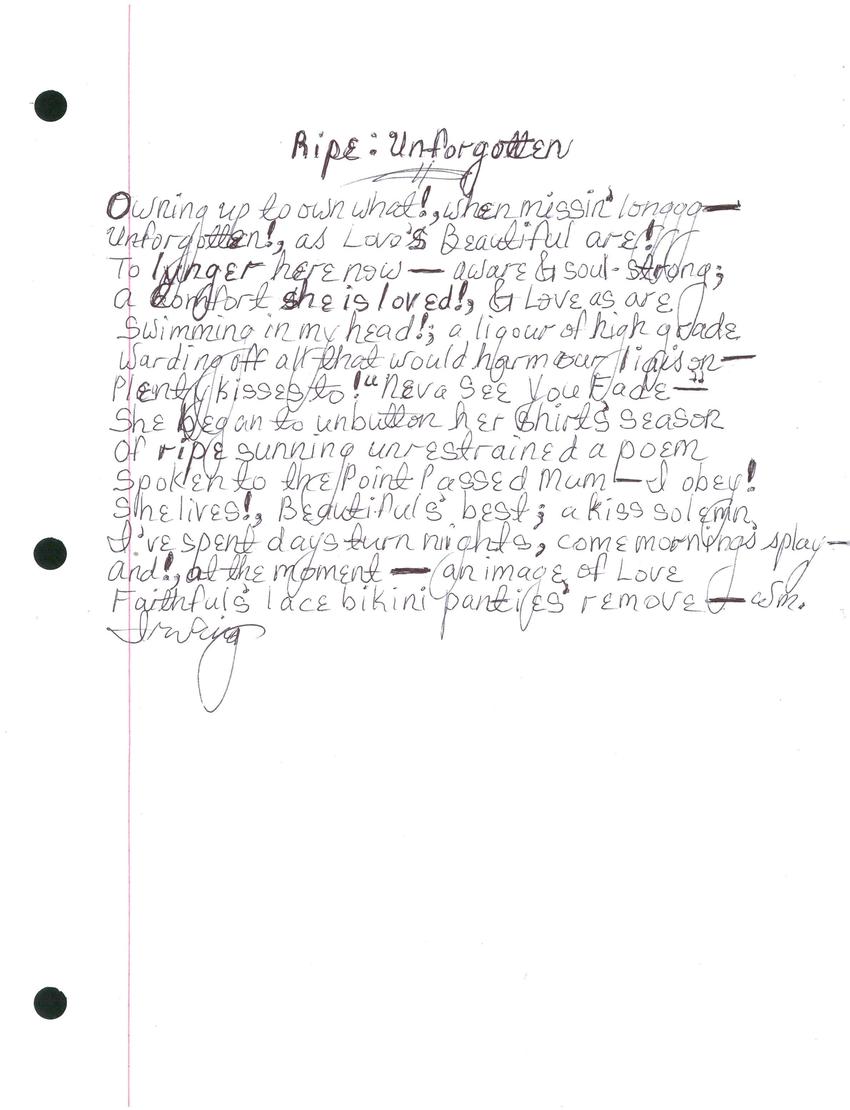 Ripe: Unforgotten
Owning up to own what!, when missin' longgg—
Unforgotten!, as Love's Beautiful are!
To lynger here now — aware & soul-strong;
a comfort she is loved!, & Love as are
Swimming in my head!; a liqour of high grade
Warding off all that would harm our liaison—
Plenty kisses to! "Neva See You Fade—"
She began to unbutton her Shirt's season
Of ripe sunning unrestrained a poem
Spoken to the Point Passed Mum—I obey!
She lives!, Beautiful's best; a kiss solemn,
I've spent days turn nights, come mornings' splay—
And!, at the moment — an image of Love
Faithful's lace bikini panties' remove — Wm.
Irving